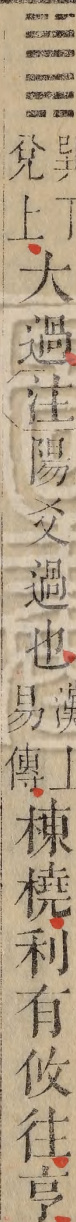 巽下
兌上
大過注陽爻過也
漢上
易傳
棟橈利有攸往亨